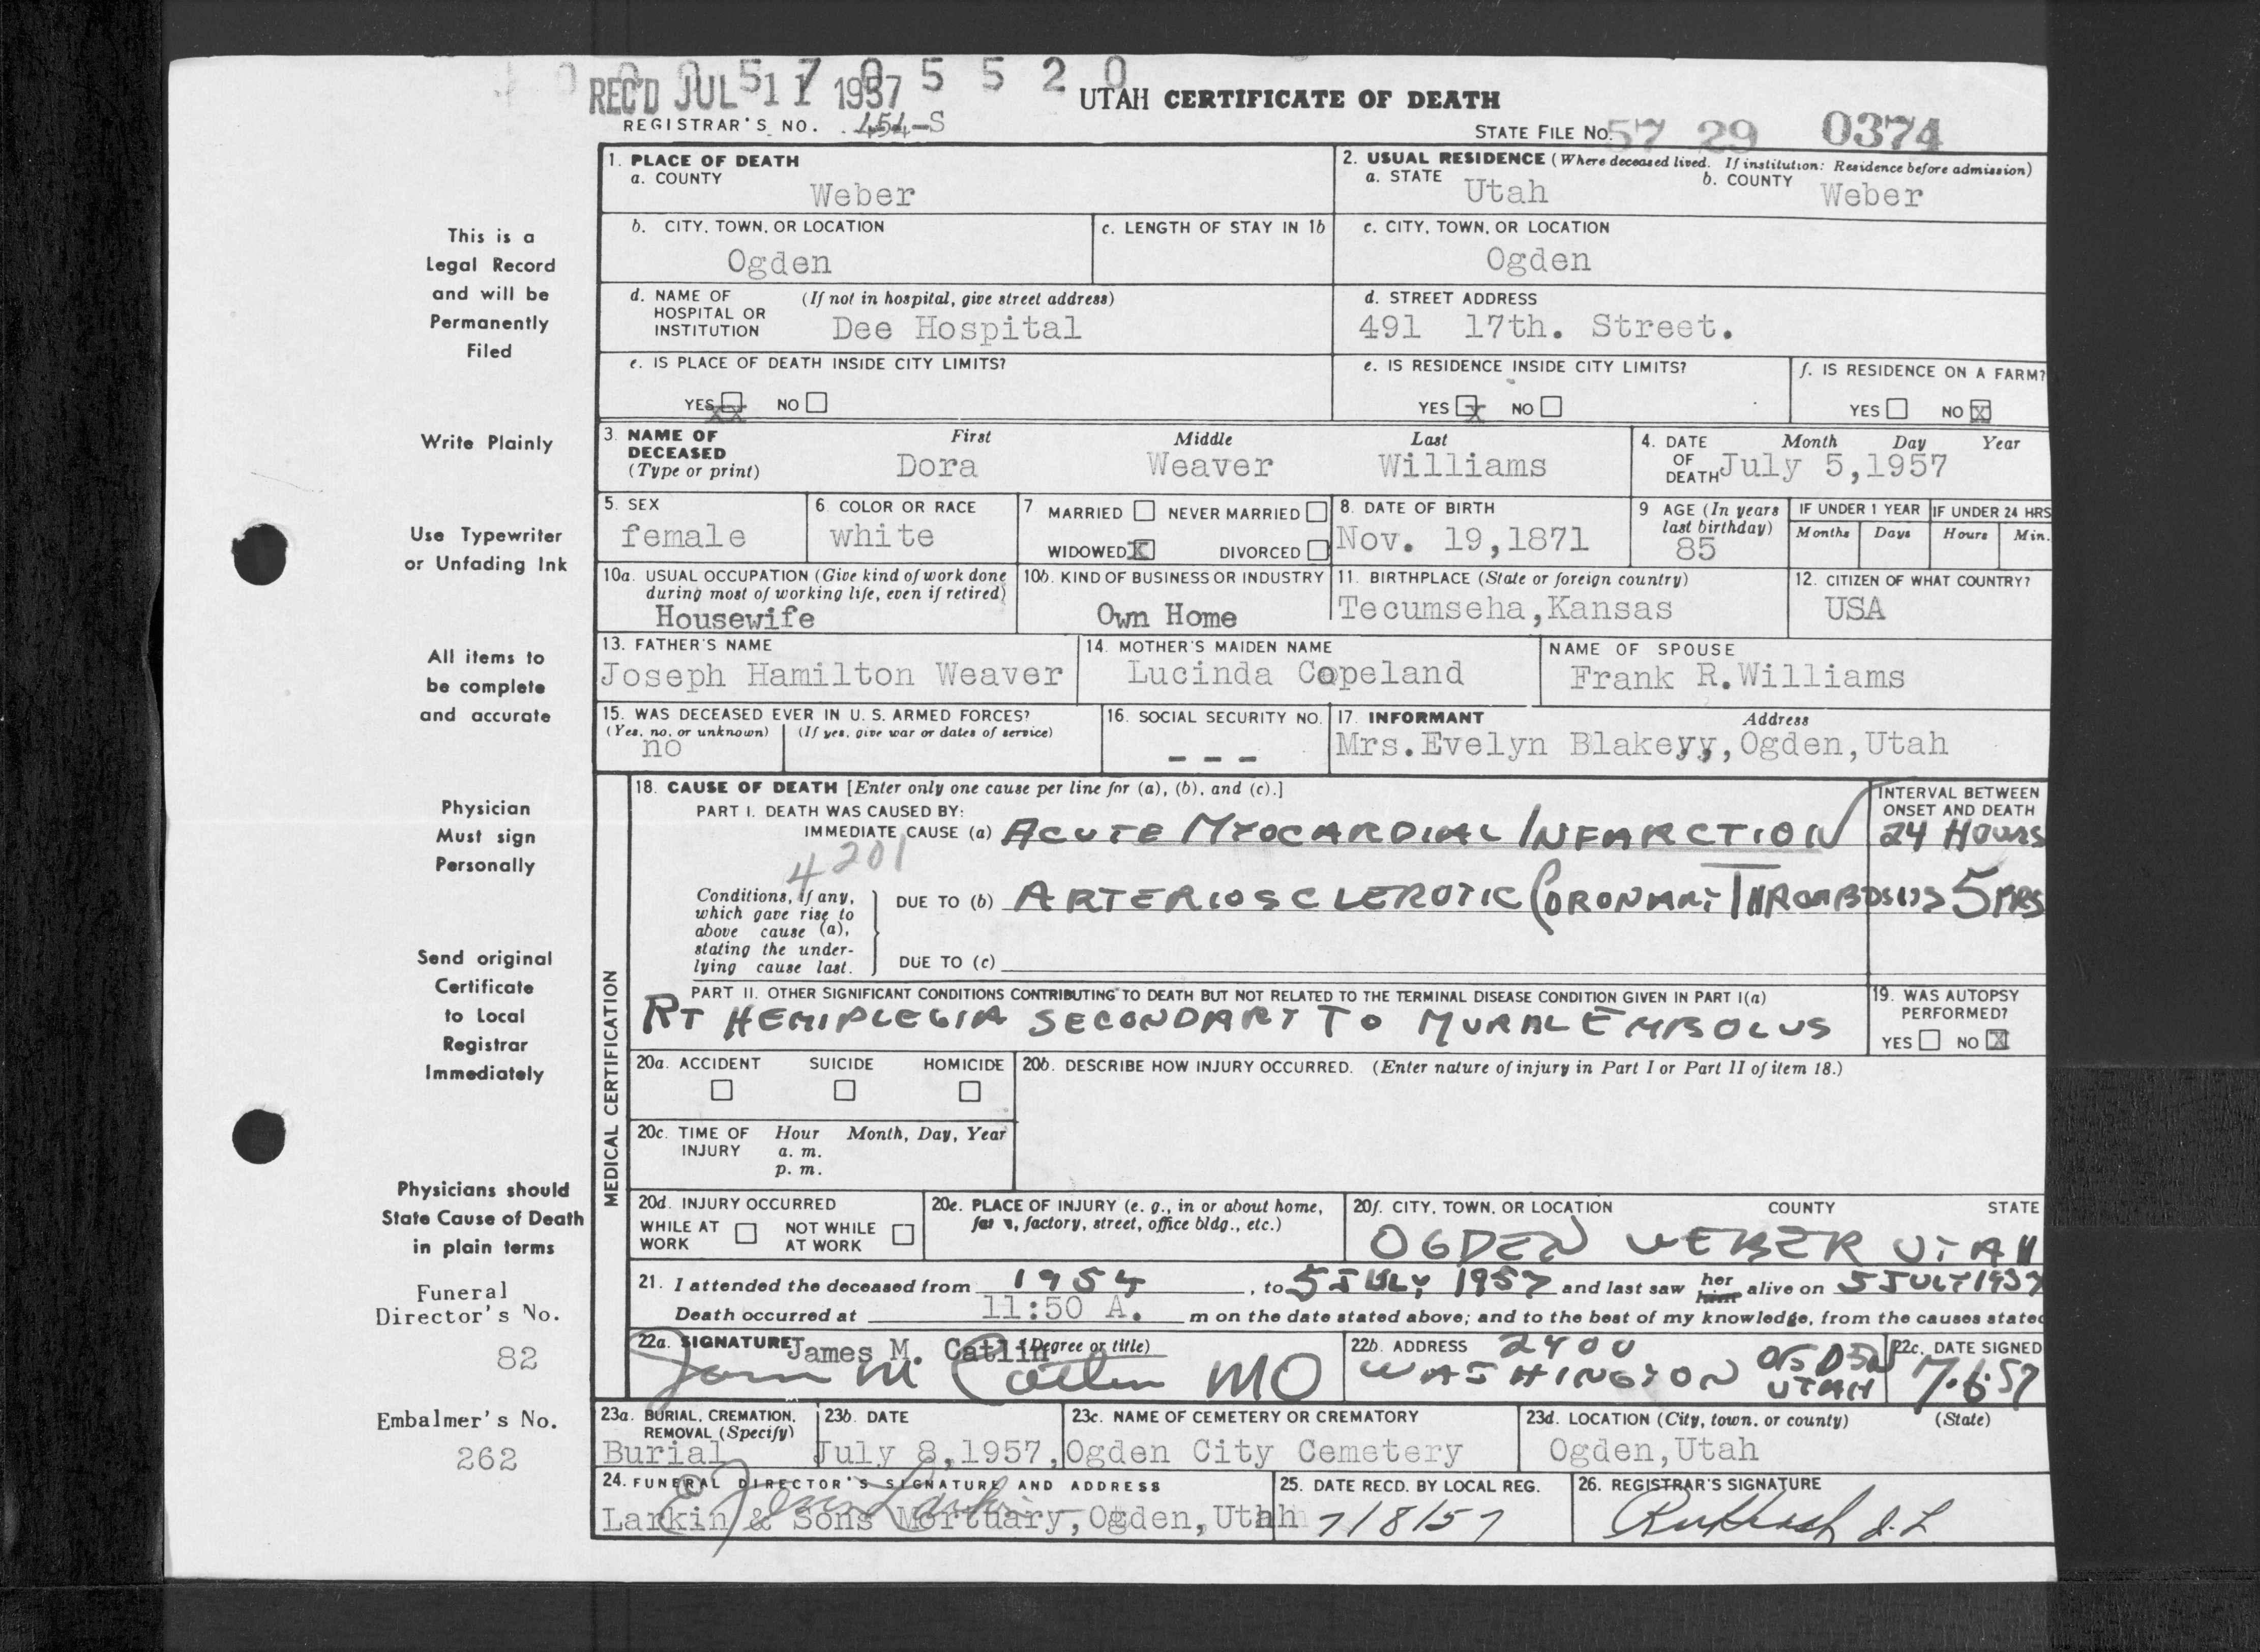 REC'D JUL 11 1957
5 7 0 5 5 2 0
UTAH CERTIFICATE OF DEATH
REGISTRAR'S NO. 454-S
STATE FILE NO. 57 29 0374
This is a
Legal Record
and will be
Permanently
Filed
Write Plainly
Use Typewriter
or Unfading Ink
All items to
be complete
and accurate
Physician
Must sign
Personally
Send original
Certificate
to Local
Registrar
Immediately
Physicians should
State Cause of Death
in plain terms
Funeral
Director's No.
82
Embalmer's No.
262
1. PLACE OF DEATH
a. COUNTY
Weber
2. USUAL RESIDENCE (Where deceased lived. If institution: Residence before admission)
a. STATE Utah b. COUNTY Weber
b. CITY, TOWN, OR LOCATION
Ogden
c. LENGTH OF STAY IN 1b
c. CITY, TOWN, OR LOCATION
Ogden
d. NAME OF HOSPITAL OR INSTITUTION (If not in hospital, give street address)
Dee Hospital
d. STREET ADDRESS
491 17th. Street.
e. IS PLACE OF DEATH INSIDE CITY LIMITS?
YES XX NO
e. IS RESIDENCE INSIDE CITY LIMITS?
YES X NO
f. IS RESIDENCE ON A FARM?
YES NO X
3. NAME OF DECEASED (Type or print)
First Middle Last
Dora Weaver Williams
4. DATE OF DEATH Month Day Year
July 5,1957
5. SEX
female
6. COLOR OR RACE
white
7 MARRIED NEVER MARRIED
WIDOWED X DIVORCED
8. DATE OF BIRTH
Nov. 19,1871
9 AGE (In years last birthday)
85
IF UNDER 1 YEAR IF UNDER 24 HRS
Months Days Hours Min.
10a. USUAL OCCUPATION (Give kind of work done during most of working life, even if retired)
Housewife
10b. KIND OF BUSINESS OR INDUSTRY
Own Home
11. BIRTHPLACE (State or foreign country)
Tecumseha,Kansas
12. CITIZEN OF WHAT COUNTRY?
USA
13. FATHER'S NAME
Joseph Hamilton Weaver
14. MOTHER'S MAIDEN NAME
Lucinda Copeland
NAME OF SPOUSE
Frank R.Williams
15. WAS DECEASED EVER IN U. S. ARMED FORCES?
(Yes, no, or unknown) (If yes, give war or dates of service)
no
16. SOCIAL SECURITY NO.
- - -
17. INFORMANT Address
Mrs.Evelyn Blakeyy,Ogden,Utah
MEDICAL CERTIFICATION
18. CAUSE OF DEATH [Enter only one cause per line for (a), (b), and (c).]
INTERVAL BETWEEN ONSET AND DEATH
PART I. DEATH WAS CAUSED BY:
IMMEDIATE CAUSE (a) ACUTE MYOCARDIAL INFARCTION 24 HOURS
4201
Conditions, if any, which gave rise to above cause (a), stating the underlying cause last.
DUE TO (b) ARTERIOSCLEROTIC CORONARY THROMBOSIS 5 YRS
DUE TO (c)
PART II. OTHER SIGNIFICANT CONDITIONS CONTRIBUTING TO DEATH BUT NOT RELATED TO THE TERMINAL DISEASE CONDITION GIVEN IN PART I(a)
RT HEMIPLEGIA SECONDARY TO MURAL EMBOLUS
19. WAS AUTOPSY PERFORMED?
YES NO X
20a. ACCIDENT SUICIDE HOMICIDE
20b. DESCRIBE HOW INJURY OCCURRED. (Enter nature of injury in Part I or Part II of item 18.)
20c. TIME OF INJURY Hour Month, Day, Year
a. m.
p. m.
20d. INJURY OCCURRED
WHILE AT WORK NOT WHILE AT WORK
20e. PLACE OF INJURY (e. g., in or about home, farm, factory, street, office bldg., etc.)
20f. CITY, TOWN, OR LOCATION COUNTY STATE
OGDEN WEBER UTAH
21. I attended the deceased from 1954, to 5 JULY 1957 and last saw her him alive on 5 JULY 1957
Death occurred at 11:50 A. m on the date stated above; and to the best of my knowledge, from the causes stated
22a. SIGNATURE (Degree or title)
James M. Catlin
James M Catlin MD
22b. ADDRESS 2400
WASHINGTON OGDEN UTAH
22c. DATE SIGNED
7.6.57
23a. BURIAL, CREMATION, REMOVAL (Specify)
Burial
23b. DATE
July 8,1957,
23c. NAME OF CEMETERY OR CREMATORY
Ogden City Cemetery
23d. LOCATION (City, town, or county) (State)
Ogden,Utah
24. FUNERAL DIRECTOR'S SIGNATURE AND ADDRESS
Larkin & Sons Mortuary,Ogden,Utah
25. DATE RECD. BY LOCAL REG.
7/8/57
26. REGISTRAR'S SIGNATURE